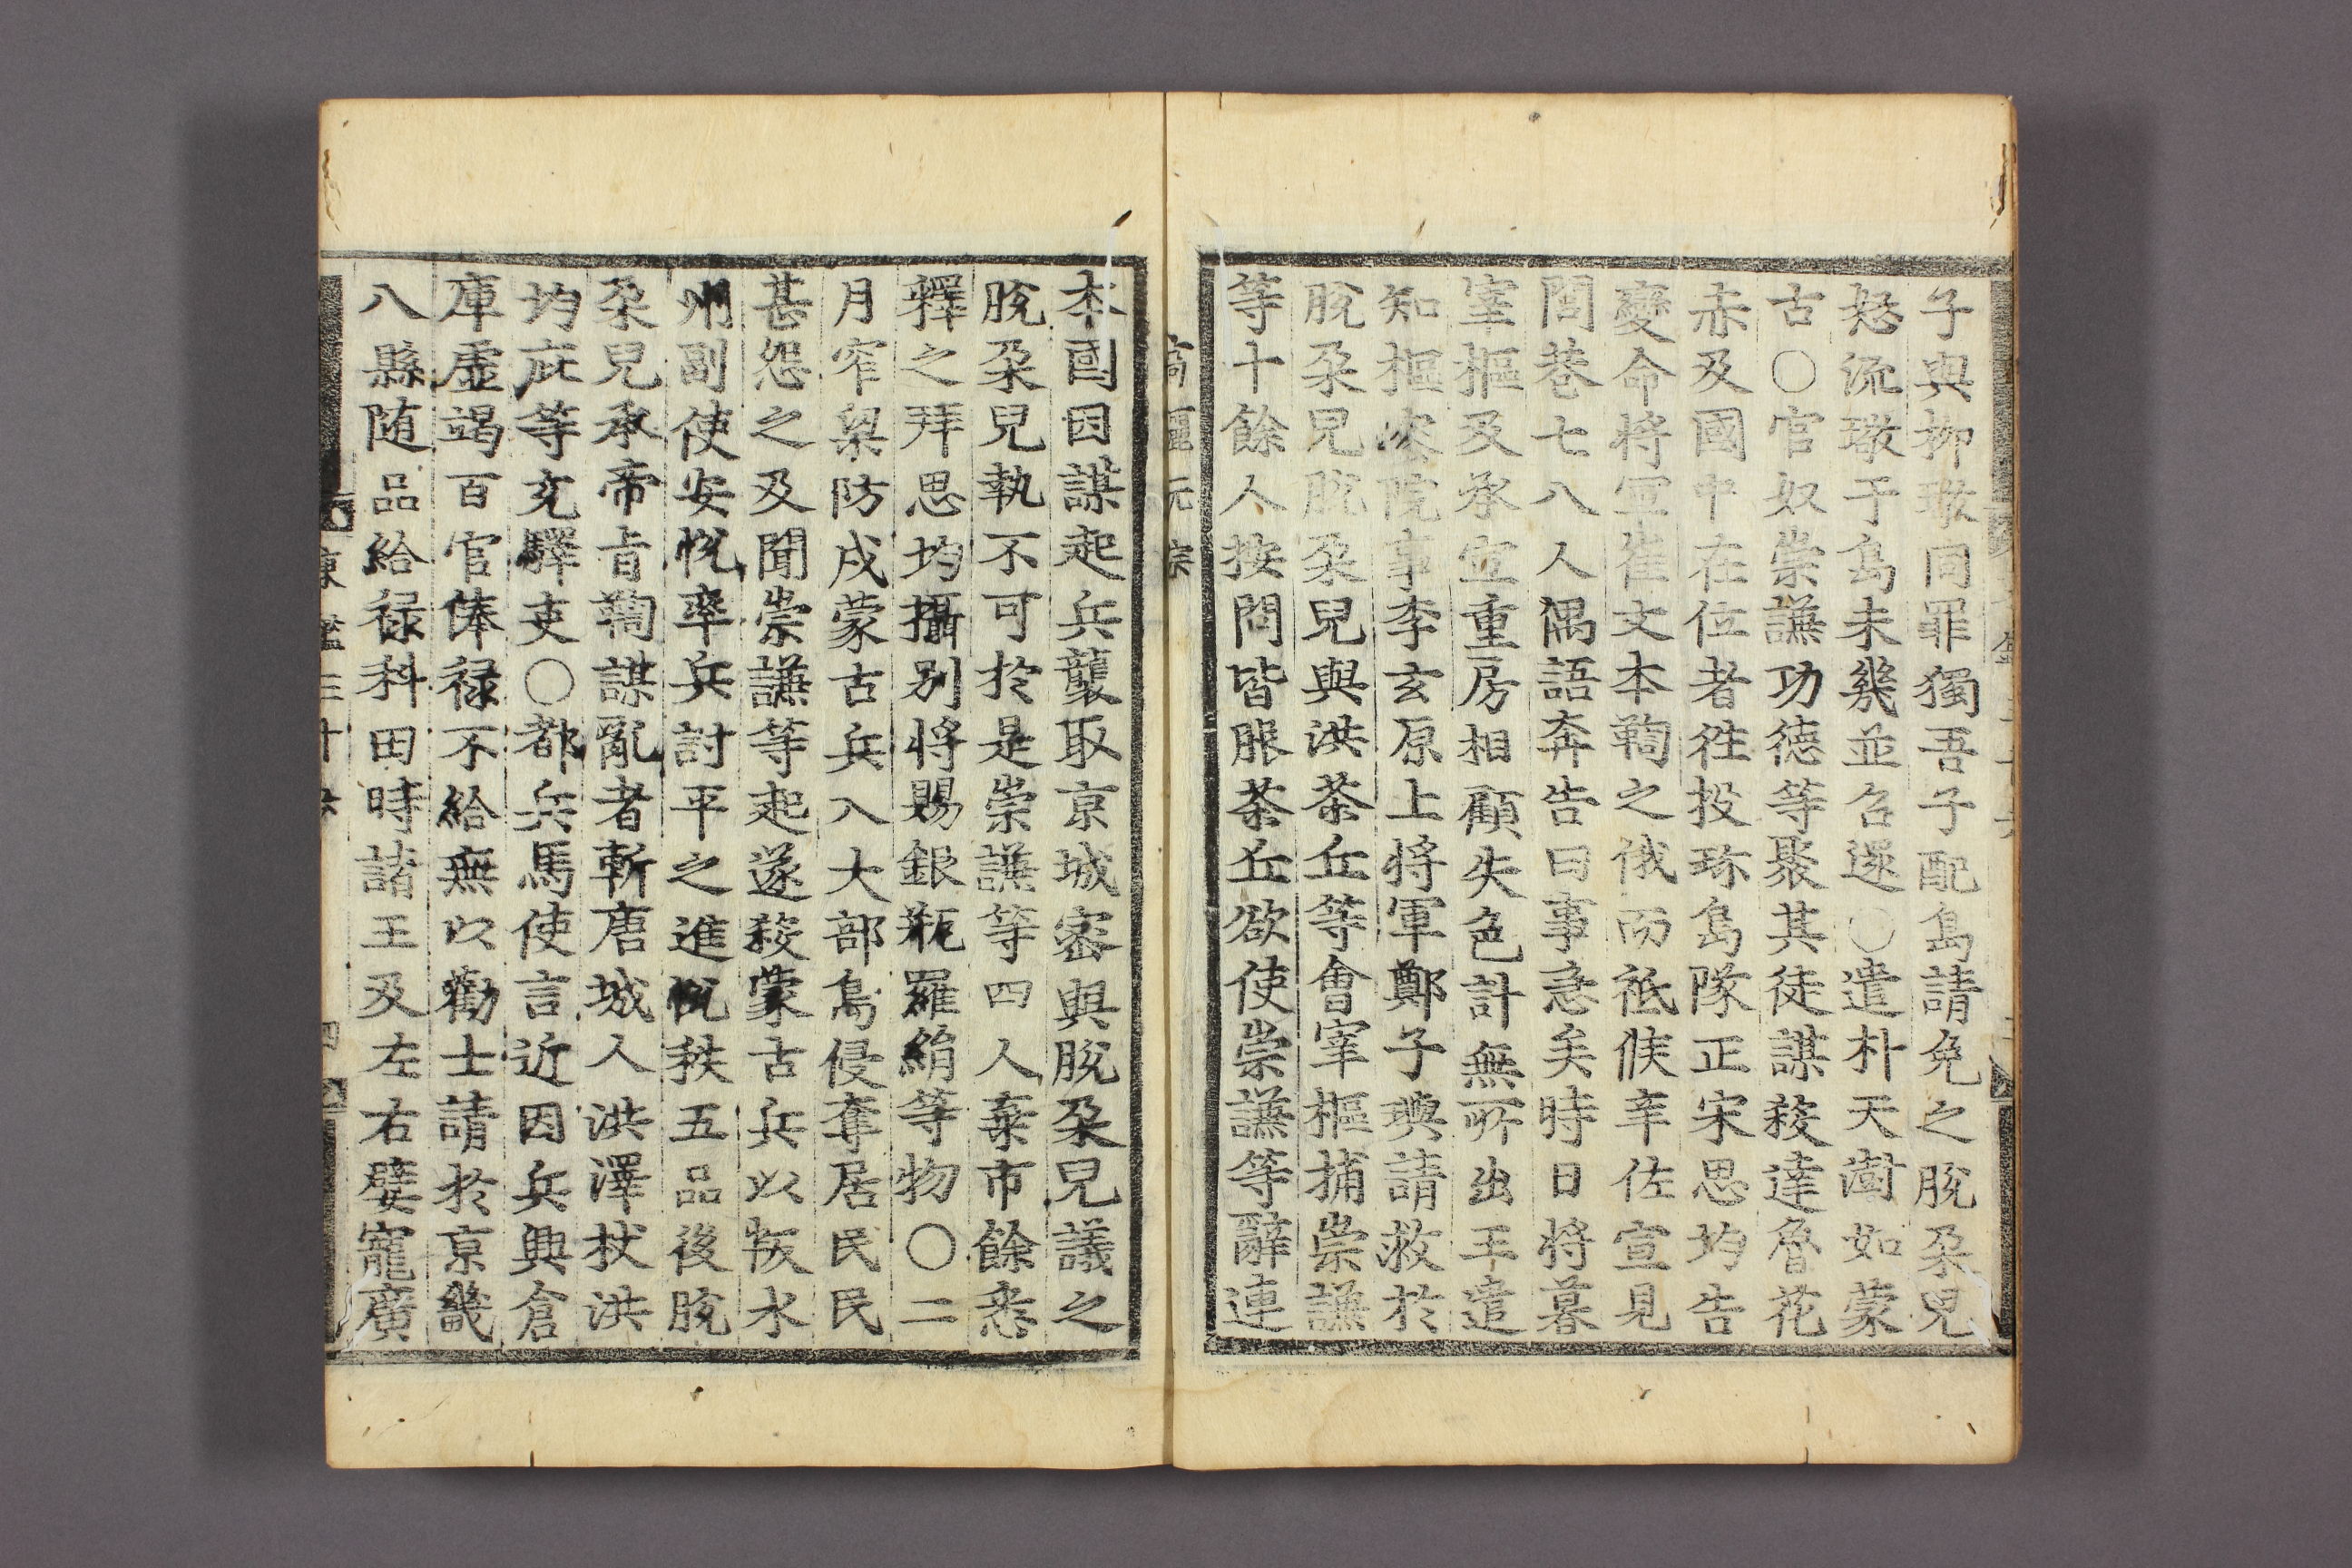 子與柳璥同罪獨吾子配島請免之脫朶兒
怒流璥于島未幾並召還○遣朴天澍如蒙
古○官奴崇謙功德等聚其徒謀殺達魯花
赤及國中在位者徃投珎島隊正宋思均告
變命將軍崔文本鞫之俄而祗候辛佐宣見
閭巷七八人偶語奔告曰事急矣時日將暮
宰樞及承宣重房相顧失色計無所出王遣
知樞密院事李玄原上將軍鄭子璵請救於
脫朶兒脫朶兒與洪茶丘等會宰樞捕崇謙
等十餘人按問皆服茶丘欲使崇謙等辭連
高麗元宗
本國因謀起兵襲取京城密與脫朶兒議之
脫朶兒執不可於是崇謙等四人棄市餘悉
釋之拜思均攝别將賜銀瓶羅絹等物○二
月窄梁防戍蒙古兵入大部島侵奪居民民
甚怨之及聞崇謙等起遂殺蒙古兵以叛水
州副使安悅率兵討平之進悅秩五品後脫
朶兒承帝旨鞫謀亂者斬唐城人洪澤杖洪
均庇等充驛吏○都兵馬使言近因兵興倉
庫虛竭百官俸禄不給無以勸士請於京畿
八縣随品給禄科田時諸王及左右嬖寵廣